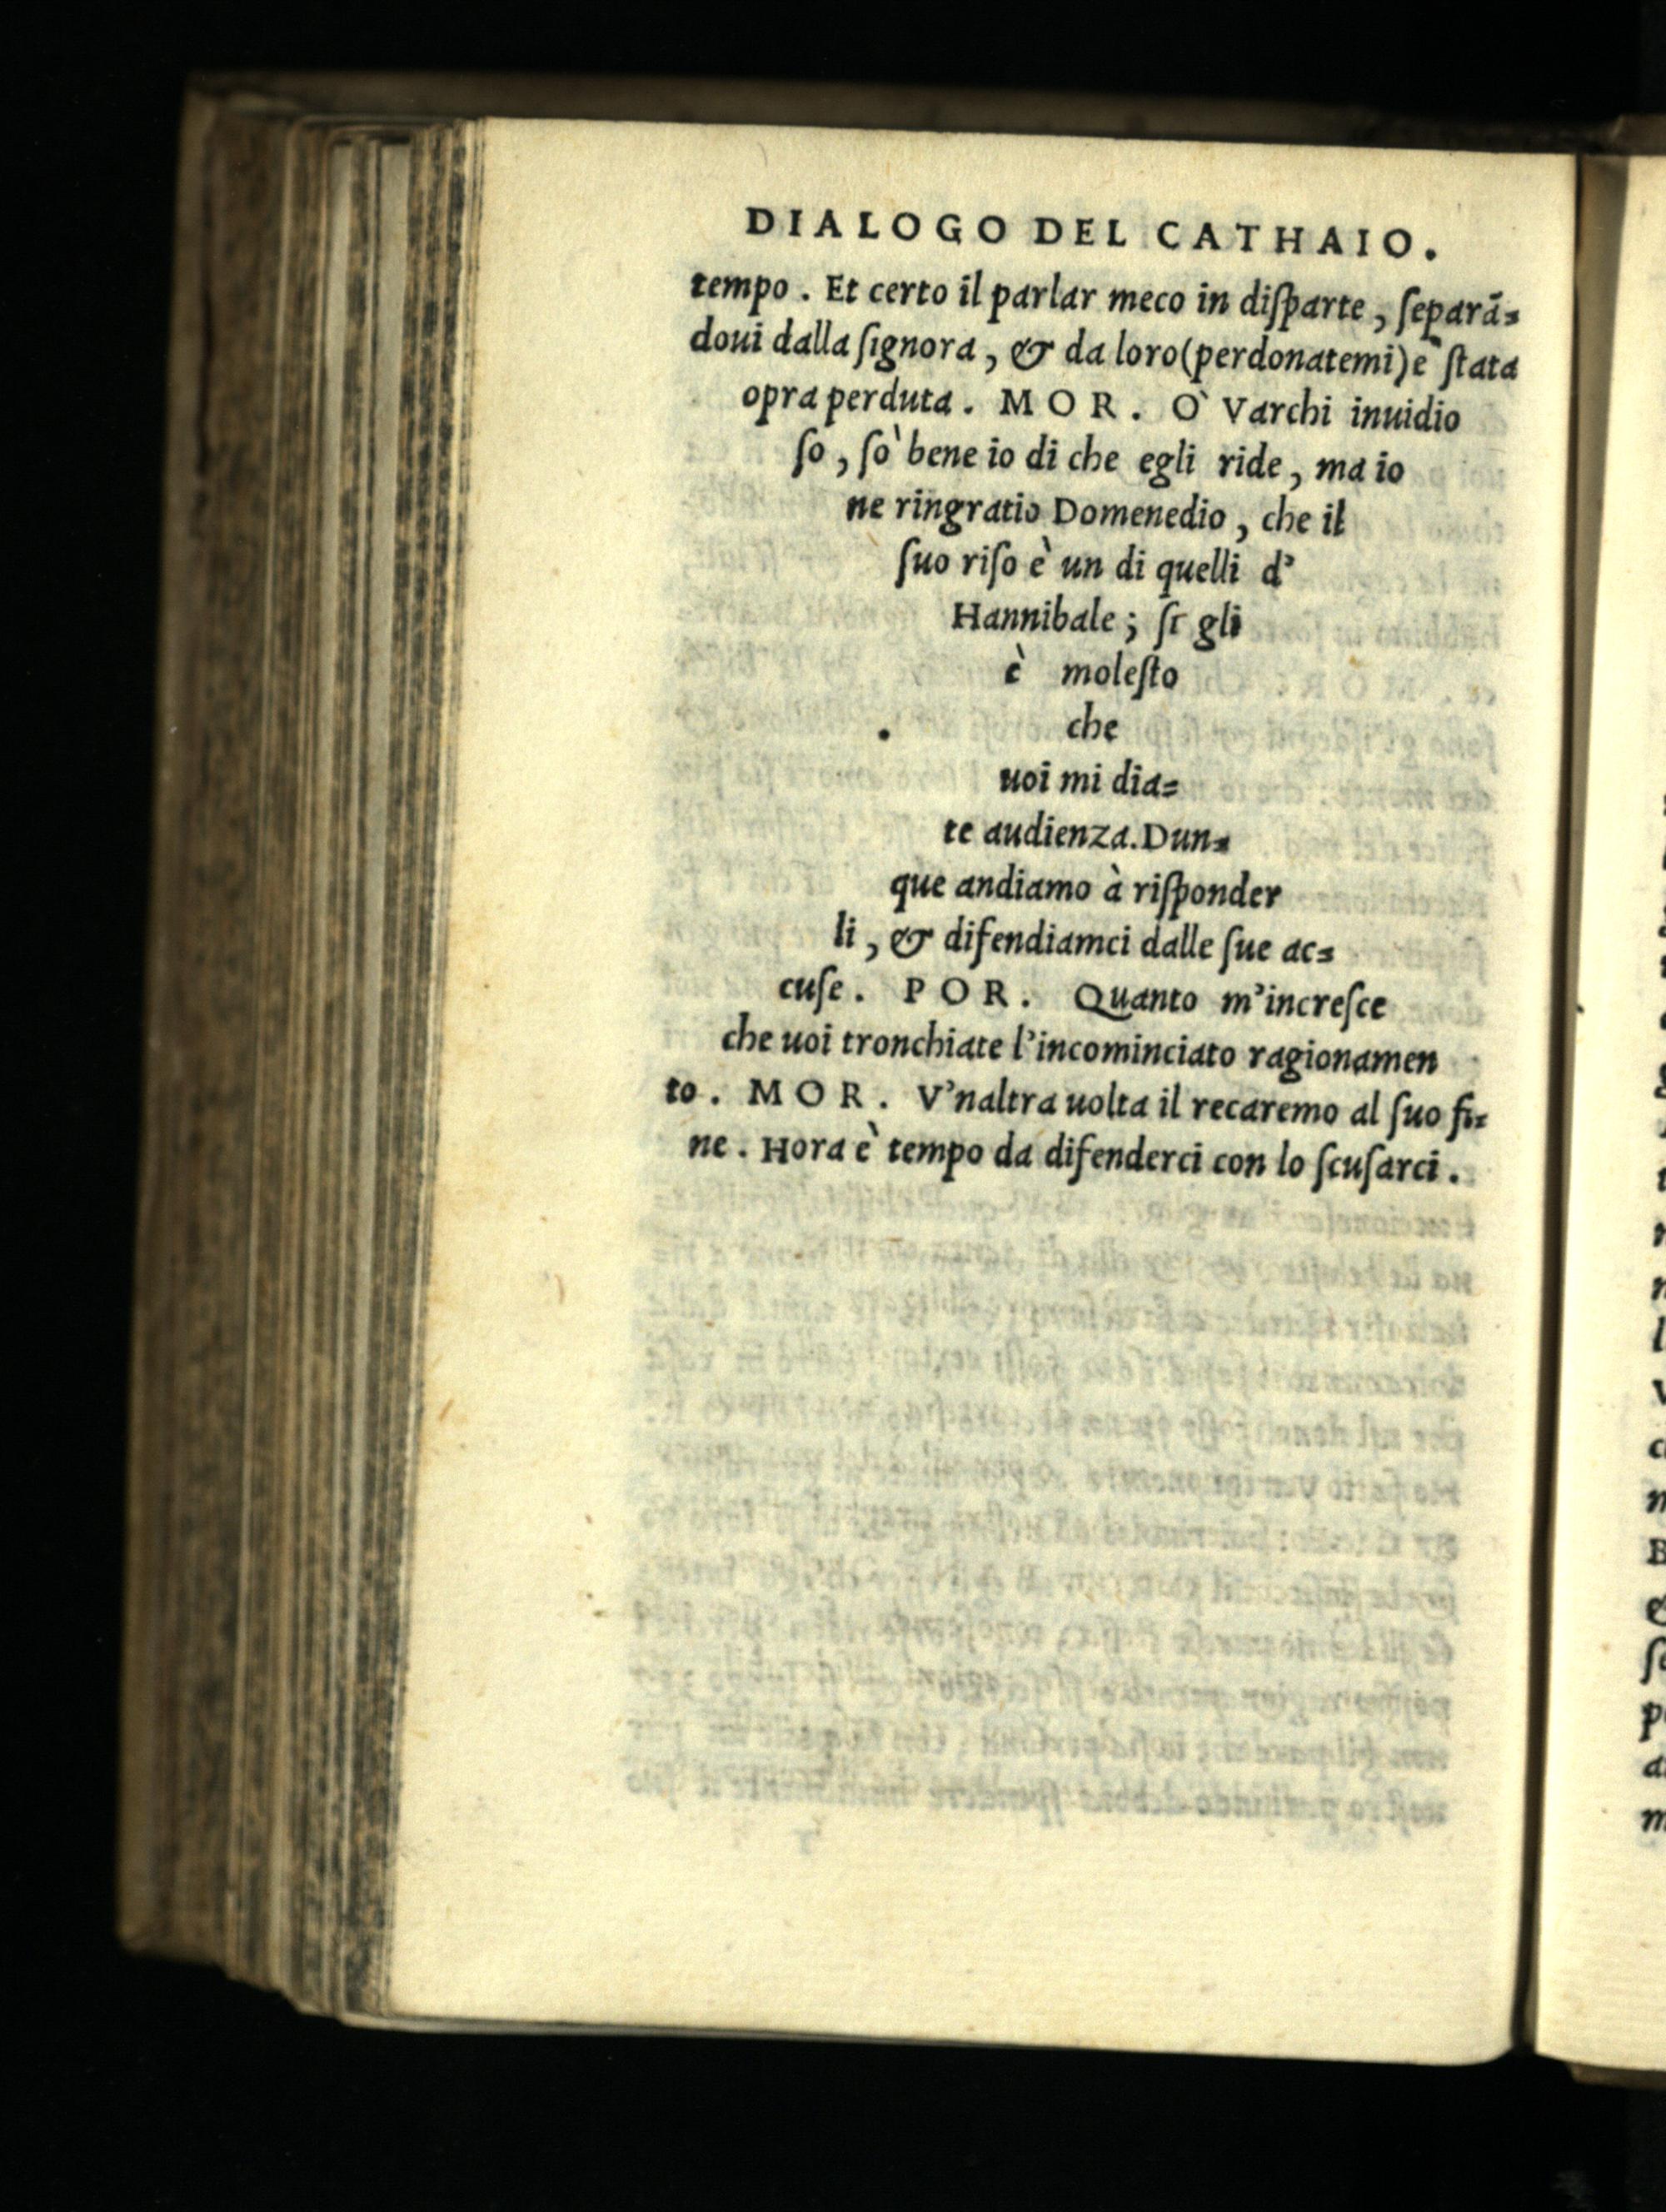 DIALOGO DEL CATHAIO.
tempo. Et certo il parlar meco in diſparte, ſeparā=
doui dalla ſignora, & da loro(perdonatemi)è ſtata
opra perduta. MOR. Ò Varchi inuidio
ſo, ſò bene io di che egli ride, ma io
ne ringratio Domenedio, che il
ſuo riſo è un di quelli d'
Hannibale; ſi gli
è moleſto
che
uoi mi dia=
te audienza. Dun=
que andiamo à riſponder
li, & difendiamci dalle ſue ac=
cuſe. POR. Quanto m'increſce
che uoi tronchiate l'incominciato ragionamen
to. MOR. V'naltra uolta il recaremo al ſuo fi=
ne. Hora è tempo da difenderci con lo ſcuſarci.